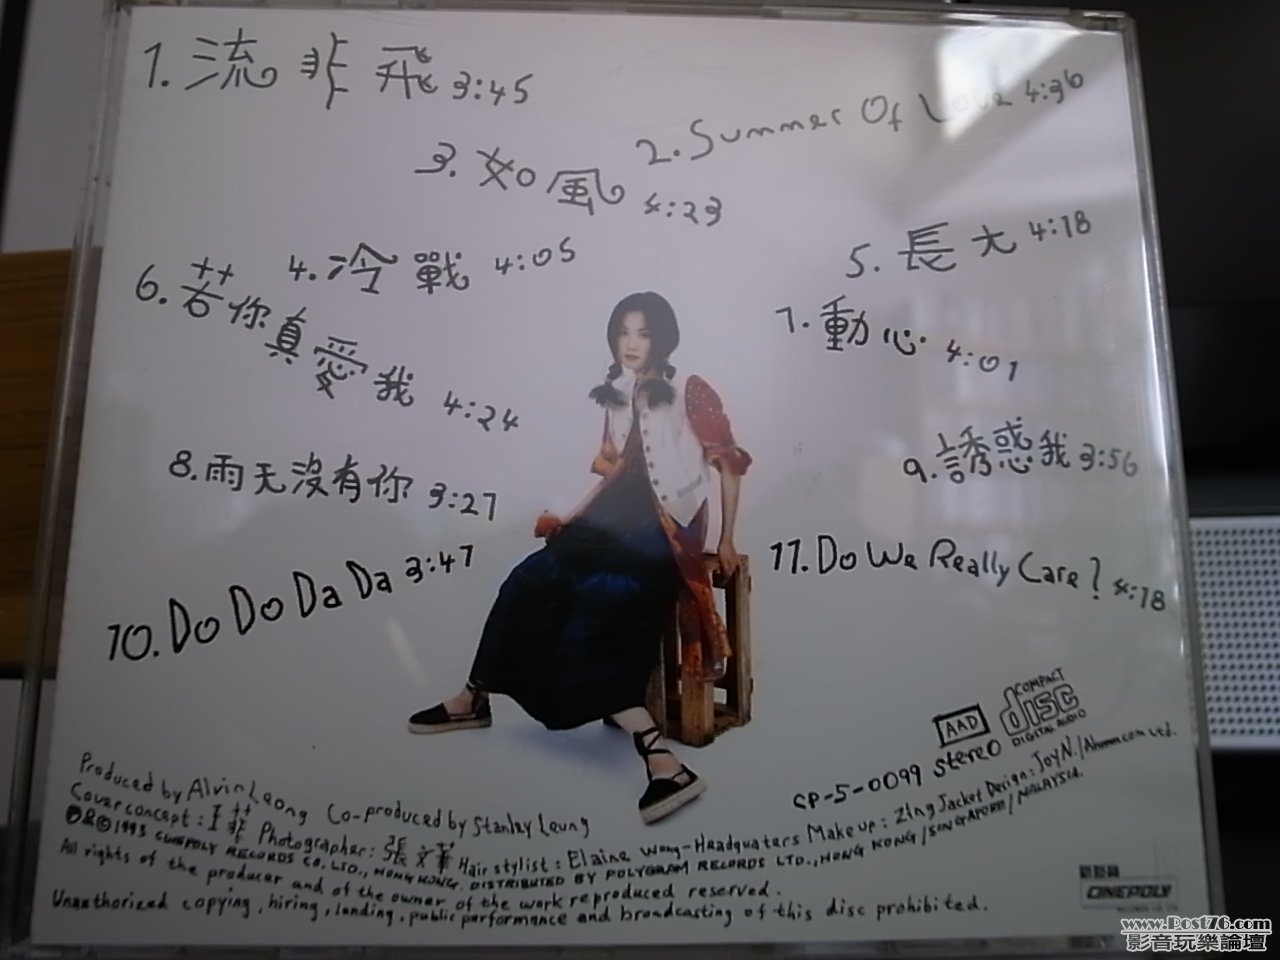 1. 流非飛 3:45
2. Summer Of Love 4:36
3. 如風 4:23
4. 冷戰 4:05
5. 長大 4:18
6. 若你真愛我 4:24
7. 動心 4:01
8. 雨天沒有你 3:27
9. 誘惑我 3:56
10. Do Do Da Da 3:47
11. Do We Really Care? 4:18
AAD
COMPACT
disc
DIGITAL AUDIO
CP-5-0099 stereo
Produced by Alvin Leong Co-produced by Stanley Leung
Cover concept: 王菲 Photographer: 張文華 Hair stylist: Elaine Wong-Headquaters Make up: Zing Jacket Design: Joy N./
Ⓟ&©1993 CINEPOLY RECORDS CO. LTD., HONG KONG. DISTRIBUTED BY POLYGRAM RECORDS LTD., HONG KONG/SINGAPORE/MALAYSIA.
All rights of the producer and of the owner of the work reproduced reserved.
Unauthorized copying, hiring, landing, public performance and broadcasting of this disc prohibited.
新藝寶
CINEPOLY
www.Post76.com
影音玩樂論壇